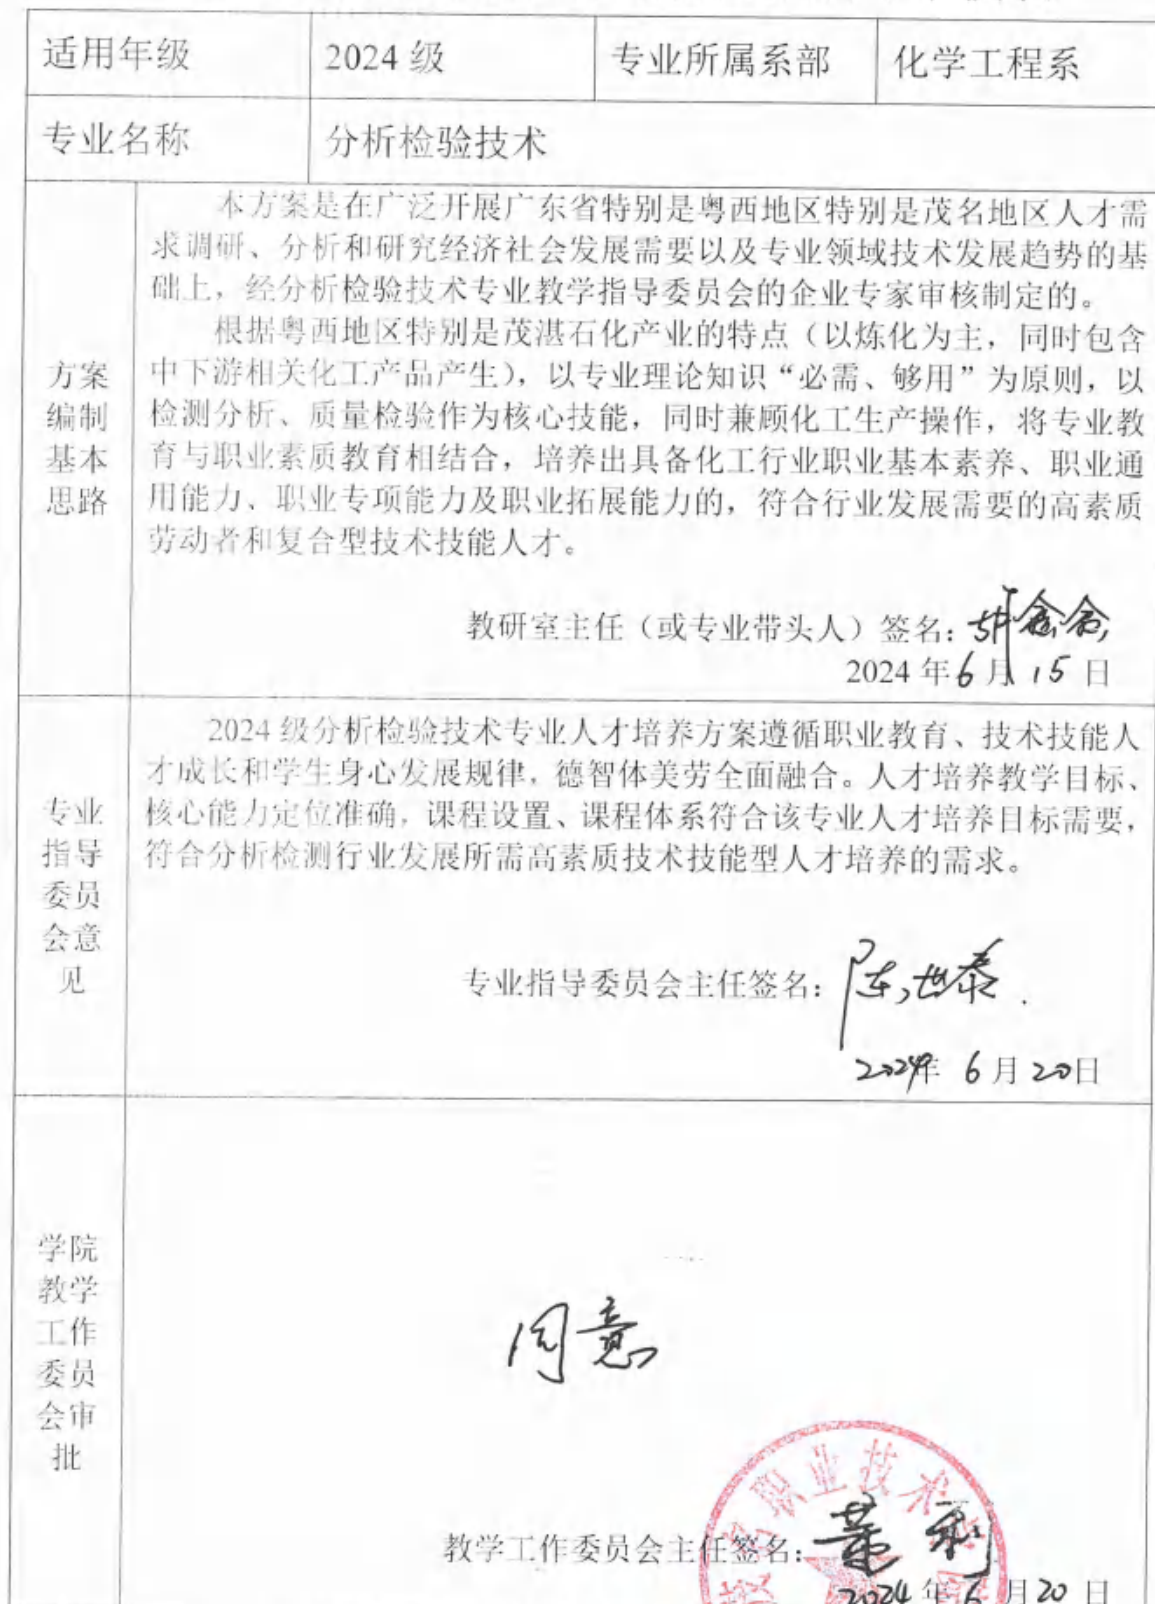 适用年级 2024 级 专业所属系部 化学工程系
专业名称 分析检验技术
方案
编制
基本
思路
本方案是在广泛开展广东省特别是粤西地区特别是茂名地区人才需
求调研、分析和研究经济社会发展需要以及专业领域技术发展趋势的基
础上，经分析检验技术专业教学指导委员会的企业专家审核制定的。
根据粤西地区特别是茂湛石化产业的特点（以炼化为主，同时包含
中下游相关化工产品产生），以专业理论知识“必需、够用”为原则，以
检测分析、质量检验作为核心技能，同时兼顾化工生产操作，将专业教
育与职业素质教育相结合，培养出具备化工行业职业基本素养、职业通
用能力、职业专项能力及职业拓展能力的，符合行业发展需要的高素质
劳动者和复合型技术技能人才。
教研室主任（或专业带头人）签名：
2024 年 6 月 15 日
专业
指导
委员
会意
见
2024 级分析检验技术专业人才培养方案遵循职业教育、技术技能人
才成长和学生身心发展规律，德智体美劳全面融合。人才培养教学目标、
核心能力定位准确，课程设置、课程体系符合该专业人才培养目标需要，
符合分析检测行业发展所需高素质技术技能型人才培养的需求。
专业指导委员会主任签名：陈世泰
2024年 6 月 20日
学院
教学
工作
委员
会审
批
同意
职业技术
教学工作委员会主任签名：
2024 年 6 月 20 日